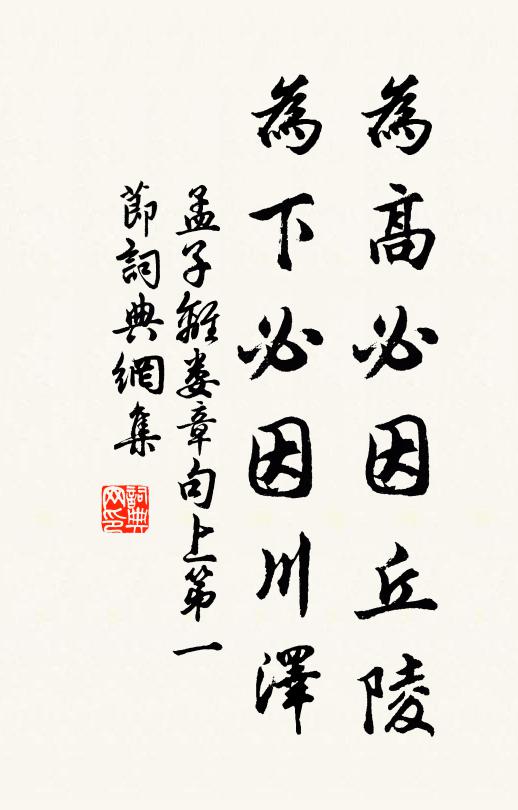 為高必因丘陵
為下必因川澤
孟子離娄章句上第一
節詞典網集
詞典网印